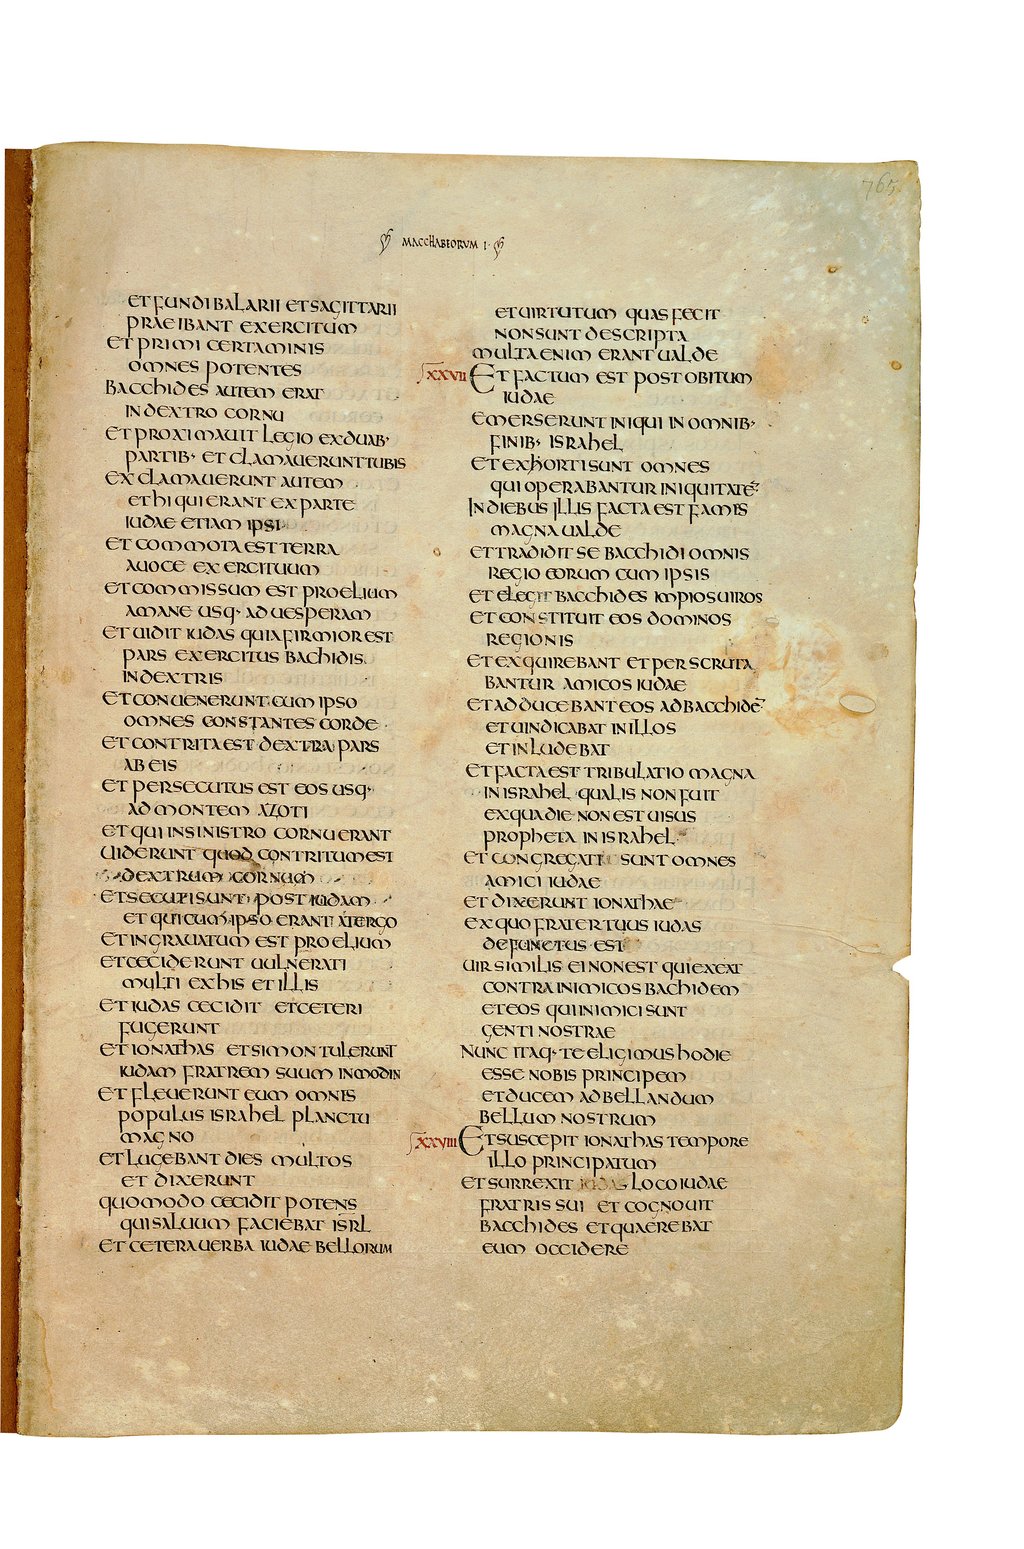 765
MACCHABEORUM I·
ET FUNDIBALARII ET SAGITTARII
PRAEIBANT EXERCITUM
ET PRIMI CERTAMINIS
OMNES POTENTES
BACCHIDES AUTEM ERAT
IN DEXTRO CORNU
ET PROXIMAUIT LEGIO EX DUAB·
PARTIB· ET CLAMAUERUNT TUBIS
EXCLAMAUERUNT AUTEM
ET HI QUI ERANT EX PARTE
IUDAE ETIAM IPSI
ET COMMOTA EST TERRA
A UOCE EXERCITUUM
ET COMMISSUM EST PROELIUM
A MANE USQ· AD UESPERAM
ET UIDIT IUDAS QUIA FIRMIOR EST
PARS EXERCITUS BACHIDIS
IN DEXTRIS
ET CONUENERUNT CUM IPSO
OMNES CONSTANTES CORDE
ET CONTRITA EST DEXTRA PARS
AB EIS
ET PERSECUTUS EST EOS USQ·
AD MONTEM AZOTI
ET QUI IN SINISTRO CORNU ERANT
UIDERUNT QUOD CONTRITUM EST
DEXTRUM CORNUM
ET SECUTI SUNT POST IUDAM
ET QUI CUM IPSO ERANT A TERGO
ET INGRAUATUM EST PROELIUM
ET CECIDERUNT UULNERATI
MULTI EX HIS ET ILLIS
ET IUDAS CECIDIT ET CETERI
FUGERUNT
ET IONATHAS ET SIMON TULERUNT
IUDAM FRATREM SUUM IN MODIN
ET FLEUERUNT EUM OMNIS
POPULUS ISRAHEL PLANCTU
MAGNO
ET LUGEBANT DIES MULTOS
ET DIXERUNT
QUOMODO CECIDIT POTENS
QUI SALUUM FACIEBAT ISRL
ET CETERA UERBA IUDAE BELLORUM
ET UIRTUTUM QUAS FECIT
NON SUNT DESCRIPTA
MULTA ENIM ERANT UALDE
XXVII ET FACTUM EST POST OBITUM
IUDAE
EMERSERUNT INIQUI IN OMNIB·
FINIB· ISRAHEL
ET EXHORTI SUNT OMNES
QUI OPERABANTUR INIQUITATĒ
IN DIEBUS ILLIS FACTA EST FAMIS
MAGNA UALDE
ET TRADIDIT SE BACCHIDI OMNIS
REGIO EORUM CUM IPSIS
ET ELEGIT BACCHIDES IMPIOS UIROS
ET CONSTITUIT EOS DOMINOS
REGIONIS
ET EXQUIREBANT ET PERSCRUTA
BANTUR AMICOS IUDAE
ET ADDUCEBANT EOS AD BACCHIDĒ
ET UINDICABAT IN ILLOS
ET INLUDEBAT
ET FACTA EST TRIBULATIO MAGNA
IN ISRAHEL QUALIS NON FUIT
EX QUA DIE NON EST UISUS
PROPHETA IN ISRAHEL
ET CONGREGATI SUNT OMNES
AMICI IUDAE
ET DIXERUNT IONATHAE
EX QUO FRATER TUUS IUDAS
DEFUNCTUS EST
UIR SIMILIS EI NON EST QUI EXEAT
CONTRA INIMICOS BACHIDEM
ET EOS QUI INIMICI SUNT
GENTI NOSTRAE
NUNC ITAQ· TE ELIGIMUS HODIE
ESSE NOBIS PRINCIPEM
ET DUCEM AD BELLANDUM
BELLUM NOSTRUM
XXVIII ET SUSCEPIT IONATHAS TEMPORE
ILLO PRINCIPATUM
ET SURREXIT LOCO IUDAE
FRATRIS SUI ET COGNOUIT
BACCHIDES ET QUAEREBAT
EUM OCCIDERE